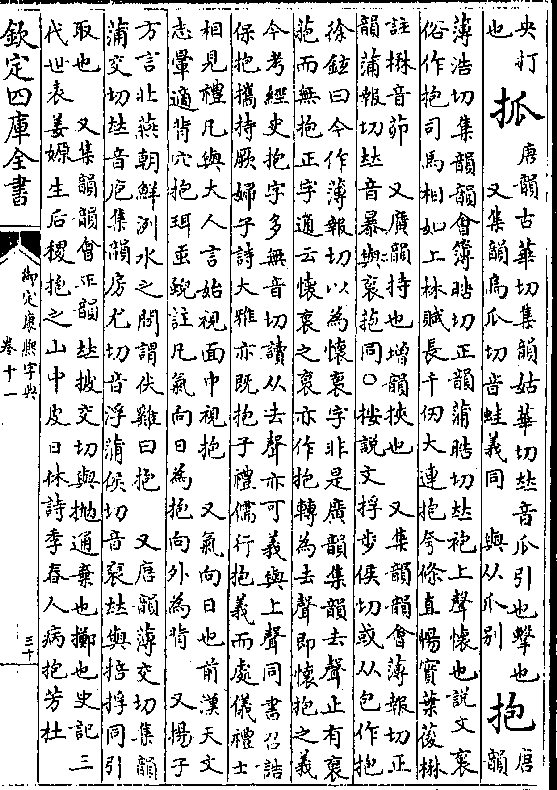 央打
也
抓
唐韻古華切集韻姑華切𠀤音瓜引也擊也
又集韻烏瓜切音蛙義同 與从爪別
抱
唐
韻
薄浩切集韻韻會簿皓切正韻蒲皓切𠀤袍上聲懷也説文裹
俗作抱司馬相如上林賦長千仞大連抱夸條直暢實葉葰楙
註楙音茆 又廣韻持也增韻挾也 又集韻韻會薄報切正
韻蒲報切𠀤音暴與裒菢同○按説文捊步侯切或从包作抱
徐鉉曰今作薄報切以為懷裒字非是廣韻集韻去聲止有裒
菢而無抱正字通云懷裒之裒亦作抱轉為去聲即懷抱之義
今考經史抱字多無音切讀从去聲亦可義與上聲同書召誥
保抱攜持厥婦子詩大雅亦既抱子禮儒行抱義而處儀禮士
相見禮凡與大人言始視面中視抱 又氣向日也前漢天文
志暈適背穴抱珥䖝蜺註凡氣向日為抱向外為背 又揚子
方言北燕朝鮮洌水之間謂伏雞曰抱 又唐韻薄交切集韻
蒲交切𠀤音庖集韻房尤切音浮蒲侯切音裒𠀤與掊捊同引
取也 又集韻韻會正韻𠀤披交切與抛通棄也擲也史記三
代世表姜嫄生后稷抱之山中皮日休詩季春人病抱芳杜
欽定四庫全書
御定康熙字典
卷十一
三十